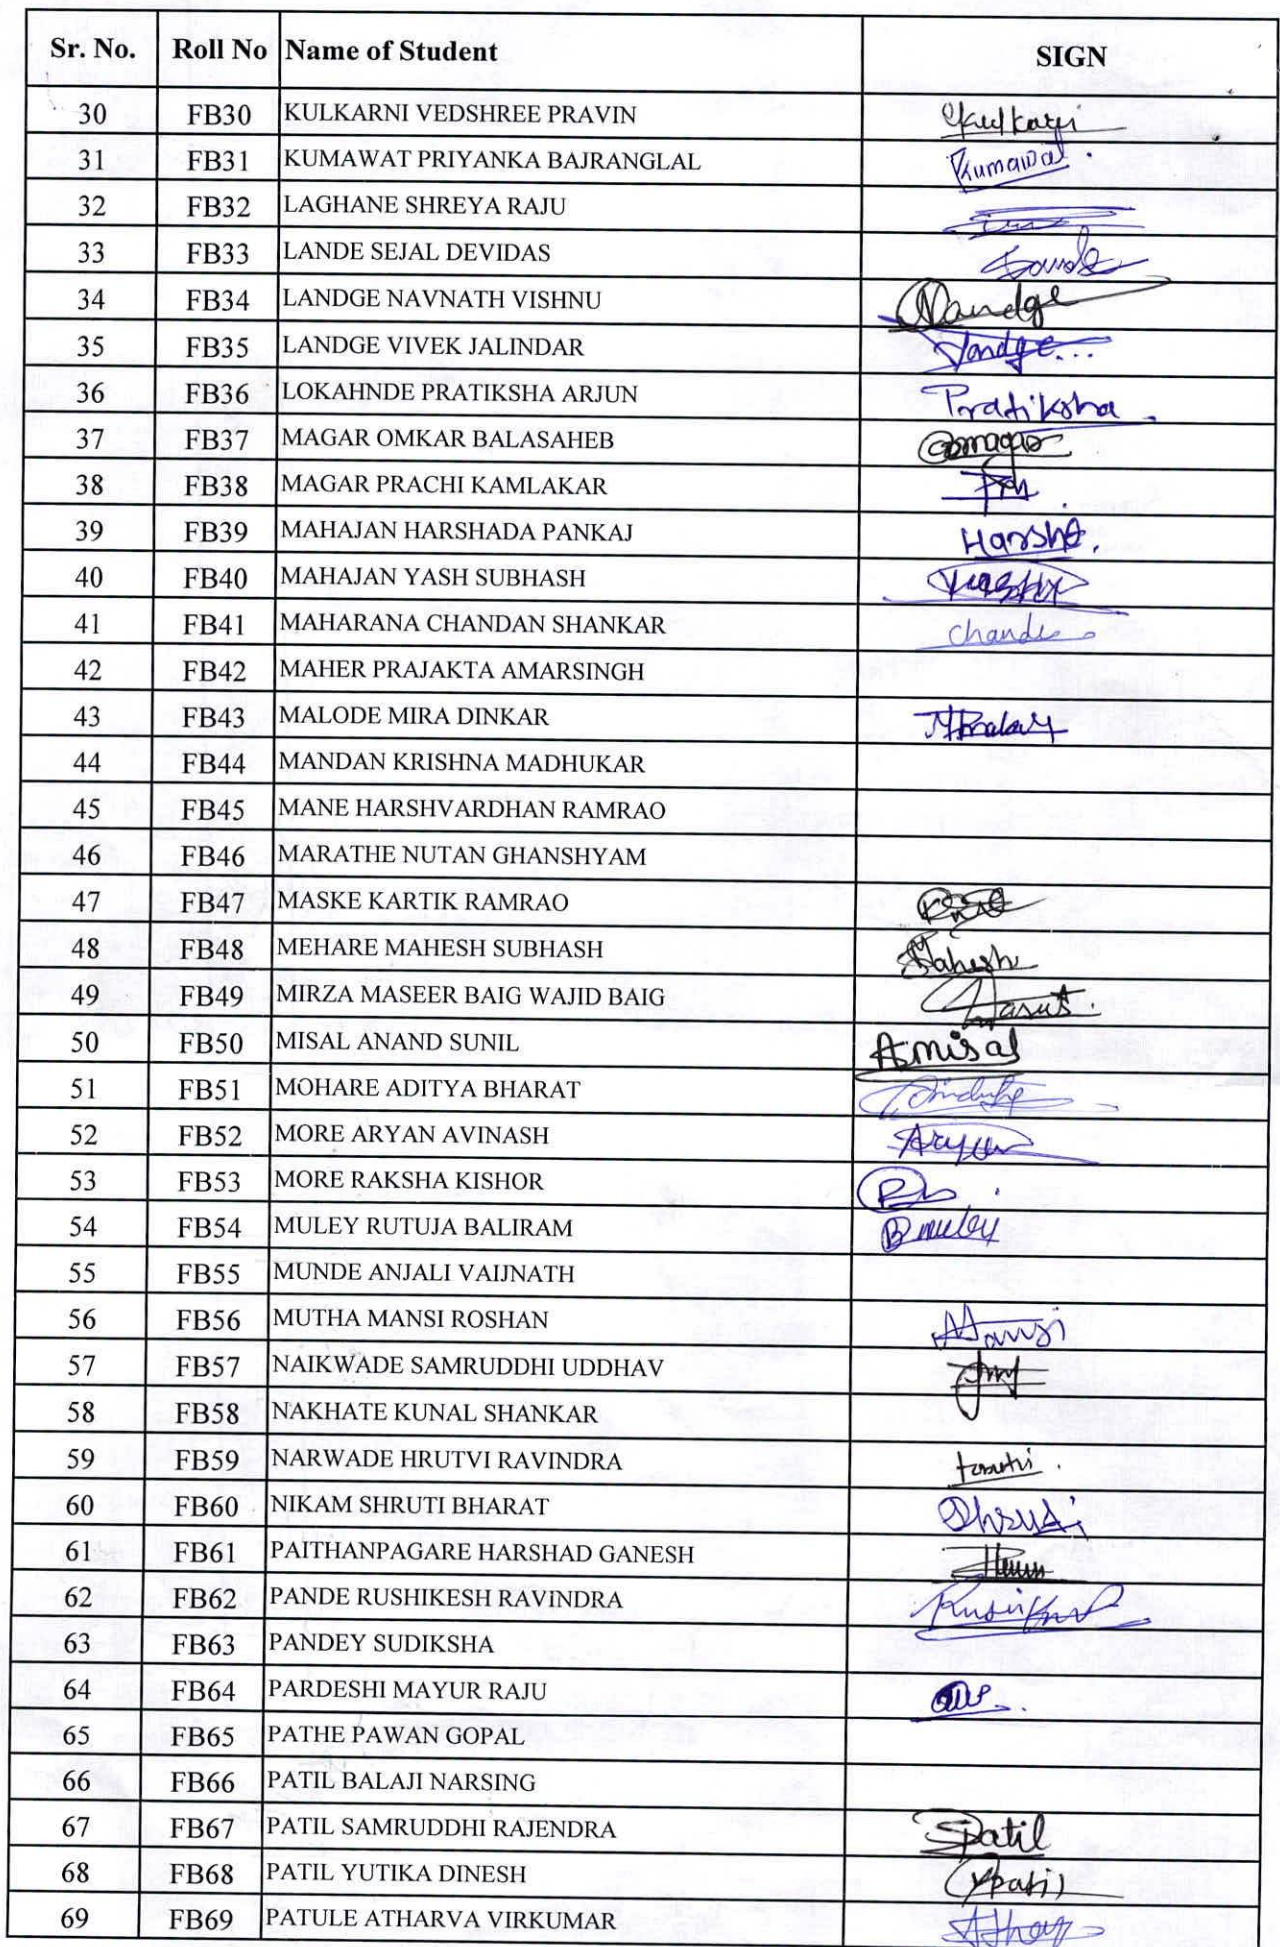 Sr. No. Roll No Name of Student SIGN
30 FB30 KULKARNI VEDSHREE PRAVIN
31 FB31 KUMAWAT PRIYANKA BAJRANGLAL Kumawat
32 FB32 LAGHANE SHREYA RAJU
33 FB33 LANDE SEJAL DEVIDAS
34 FB34 LANDGE NAVNATH VISHNU
35 FB35 LANDGE VIVEK JALINDAR
36 FB36 LOKAHNDE PRATIKSHA ARJUN Pratiksha
37 FB37 MAGAR OMKAR BALASAHEB
38 FB38 MAGAR PRACHI KAMLAKAR
39 FB39 MAHAJAN HARSHADA PANKAJ
40 FB40 MAHAJAN YASH SUBHASH
41 FB41 MAHARANA CHANDAN SHANKAR
42 FB42 MAHER PRAJAKTA AMARSINGH
43 FB43 MALODE MIRA DINKAR
44 FB44 MANDAN KRISHNA MADHUKAR
45 FB45 MANE HARSHVARDHAN RAMRAO
46 FB46 MARATHE NUTAN GHANSHYAM
47 FB47 MASKE KARTIK RAMRAO
48 FB48 MEHARE MAHESH SUBHASH Mahesh
49 FB49 MIRZA MASEER BAIG WAJID BAIG
50 FB50 MISAL ANAND SUNIL Amisal
51 FB51 MOHARE ADITYA BHARAT
52 FB52 MORE ARYAN AVINASH
53 FB53 MORE RAKSHA KISHOR
54 FB54 MULEY RUTUJA BALIRAM
55 FB55 MUNDE ANJALI VAIJNATH
56 FB56 MUTHA MANSI ROSHAN Mansi
57 FB57 NAIKWADE SAMRUDDHI UDDHAV
58 FB58 NAKHATE KUNAL SHANKAR
59 FB59 NARWADE HRUTVI RAVINDRA
60 FB60 NIKAM SHRUTI BHARAT Shruti
61 FB61 PAITHANPAGARE HARSHAD GANESH
62 FB62 PANDE RUSHIKESH RAVINDRA
63 FB63 PANDEY SUDIKSHA
64 FB64 PARDESHI MAYUR RAJU
65 FB65 PATHE PAWAN GOPAL
66 FB66 PATIL BALAJI NARSING
67 FB67 PATIL SAMRUDDHI RAJENDRA SPatil
68 FB68 PATIL YUTIKA DINESH
69 FB69 PATULE ATHARVA VIRKUMAR